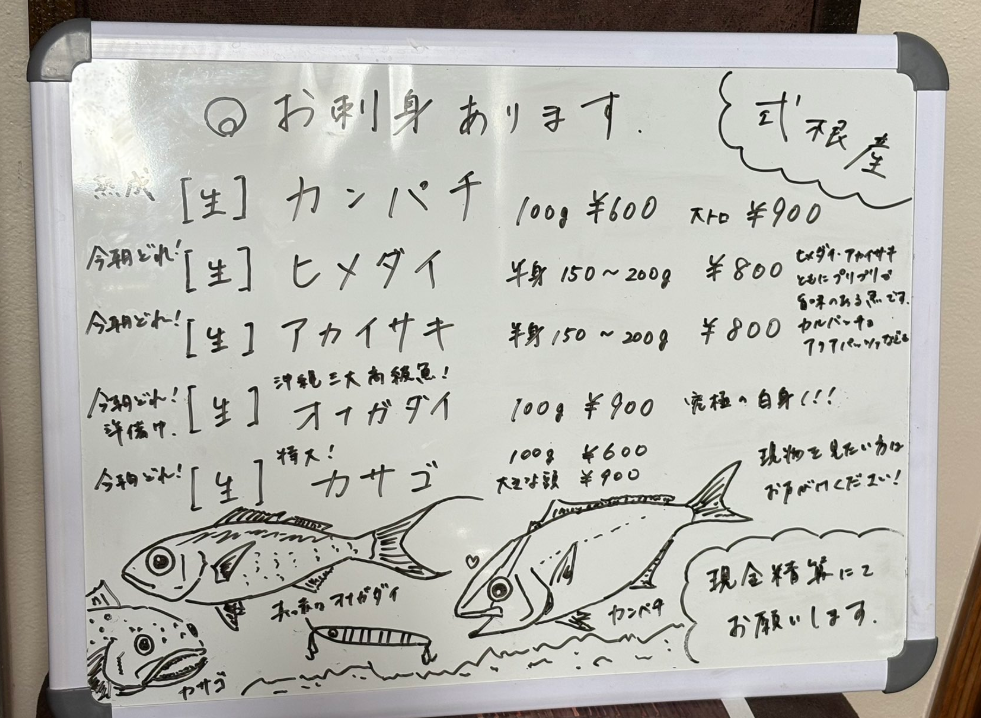 お刺身あります.
式根産
熟成 [生] カンパチ 100g ¥600 大トロ ¥900
今朝どれ! [生] ヒメダイ 半身 150～200g ¥800
ヒメダイ・アカイサキ
ともにプリプリで
旨味のある魚です.
カルパッチョ
アクアパッツァなども
今朝どれ! [生] アカイサキ 半身 150～200g ¥800
沖縄三大高級魚!
今朝どれ! [生] オナガダイ 100g ¥900 究極の白身!!!
準備中.
特大!
今朝どれ! [生] カサゴ 100g ¥600
大きな頭 ¥900
現物を見たい方は
お声がけください!
オナガダイ
カンパチ
カサゴ
現金精算にて
お願いします.